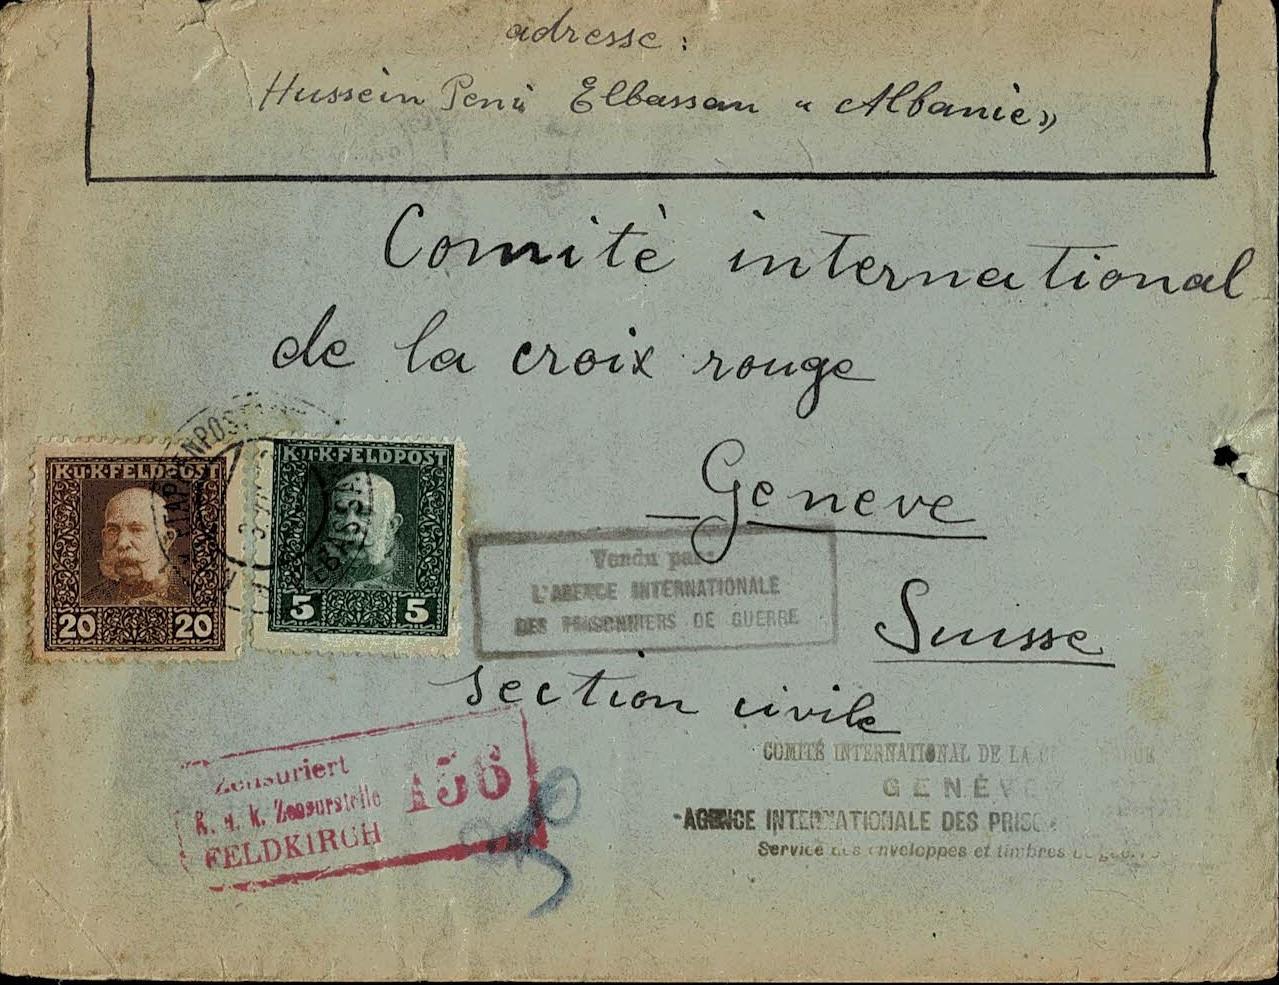 adresse :
Hussein Penu Elbassan « Albanie »
Comité international
de la croix rouge
Geneve
Suisse
section civile
K.u.K.FELDPOST
20 20
K.u.K.FELDPOST
5 5
ETAPPENPOST
ELBASSA
Vendu par:
L'AGENCE INTERNATIONALE
DES PRISONNIERS DE GUERRE
Zensuriert
K. u. k. Zensurstelle
FELDKIRCH
156
COMITÉ INTERNATIONAL DE LA
GENÈV
AGENCE INTERNATIONALE DES PRISO
Service des enveloppes et timbres de